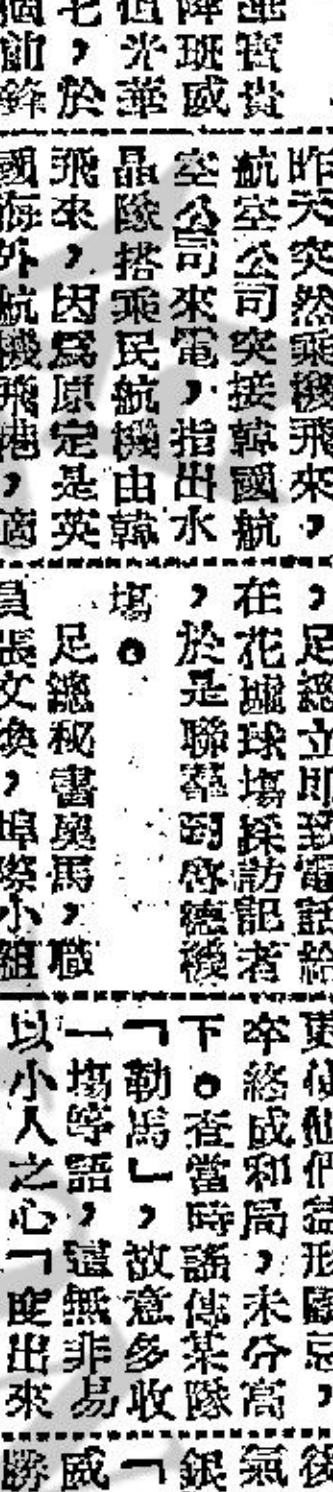 並寶貴
降班威
但光華
七，於
個前鋒
昨天突然乘機飛來，
航空公司突接韓國航
空公司來電，指出水
晶隊搭乘民航機由韓
飛來，因爲原定是英
國海外航機飛港，商
，足總立即致電話給
在花墟球塲採訪記者
，於是聯羣到啓德機
塲。
足總秘書奧馬，職
員張文煥，埠際小組
更使他們益形
卒終成和局，未分高
下。查當時謠傳某隊
「勒馬」，故意多收
一塲等語，這無非易
以小人之心「度出來
後
氣
銀
「
威
勝